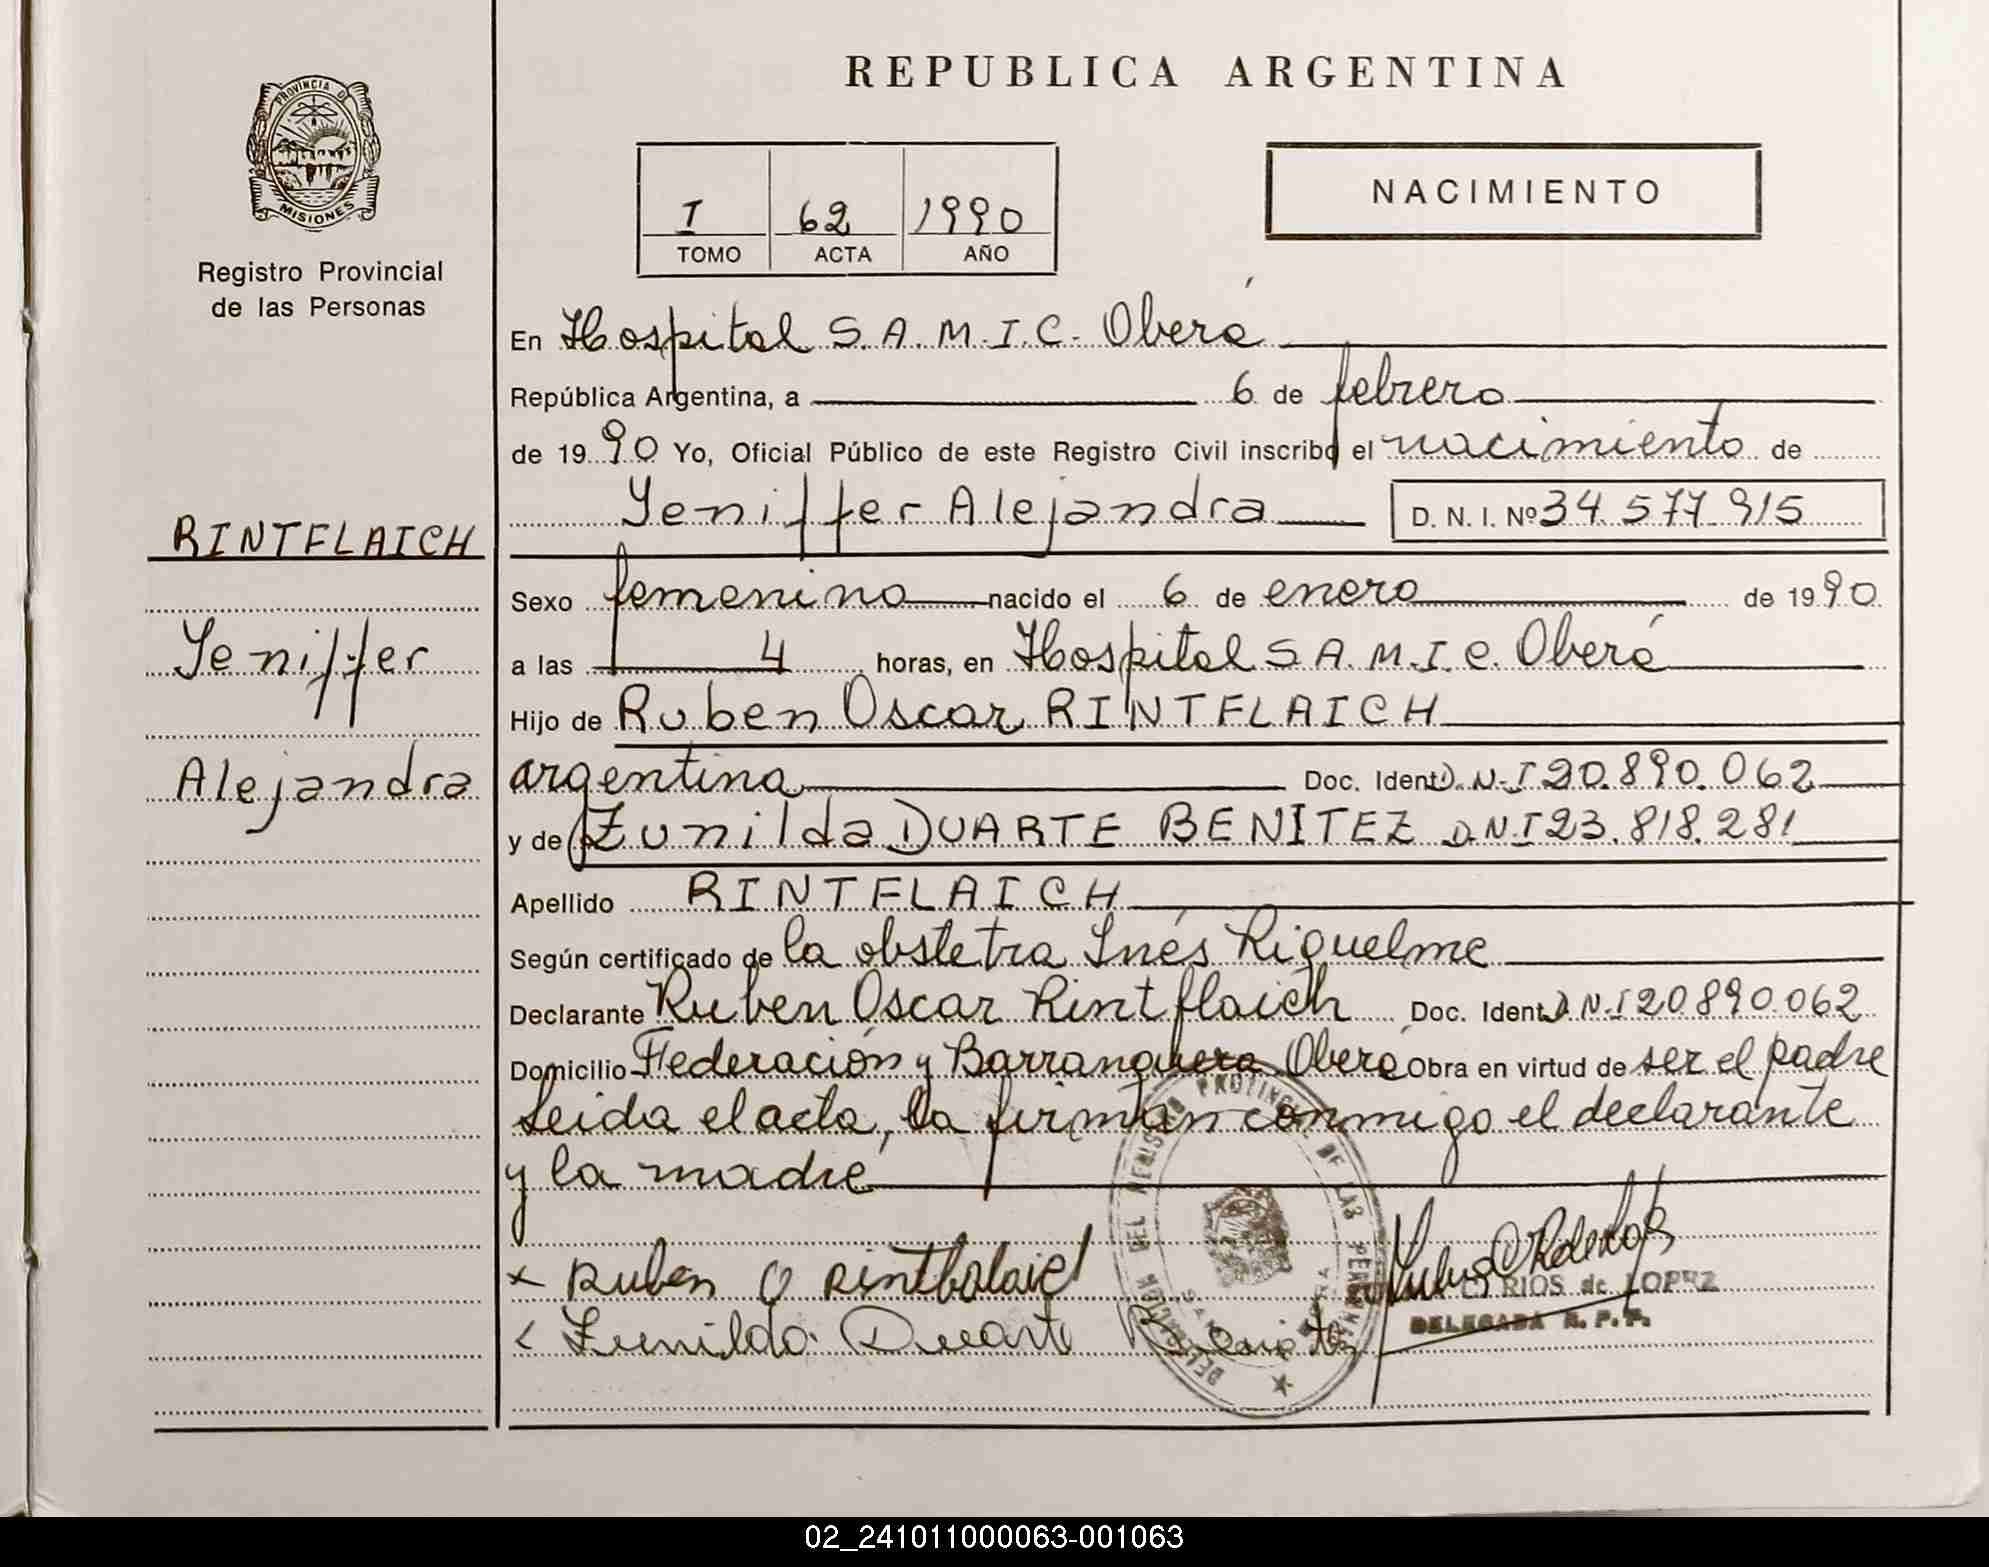 PROVINCIA DE
MISIONES
Registro Provincial
de las Personas
RINTFLAICH
Yeniffer
Alejandra
REPUBLICA ARGENTINA
I 62 1990
TOMO ACTA AÑO
NACIMIENTO
En Hospital S.A.M.I.C. Oberá
República Argentina, a 6 de febrero
de 1990 Yo, Oficial Público de este Registro Civil inscribo el nacimiento de
Yeniffer Alejandra D. N. I. Nº 34.577.915
Sexo femenino nacido el 6 de enero de 1990
a las 4 horas, en Hospital S.A.M.I.C. Oberá
Hijo de Ruben Oscar RINTFLAICH
argentina Doc. Ident. D.N.I 20.890.062
y de Zunilda DUARTE BENITEZ D.N.I 23.818.281
Apellido RINTFLAICH
Según certificado de la obstetra Inés Riquelme
Declarante Ruben Oscar Rintflaich Doc. Ident. D.N.I 20890.062
Domicilio Federación y Barranquera Oberá Obra en virtud de ser el padre
Leida el acta, la firman conmigo el declarante
y la madre
x Ruben O
Zunilda Duarte
RIOS de LOPEZ
DELEGADA R. P. P.
02_241011000063-001063